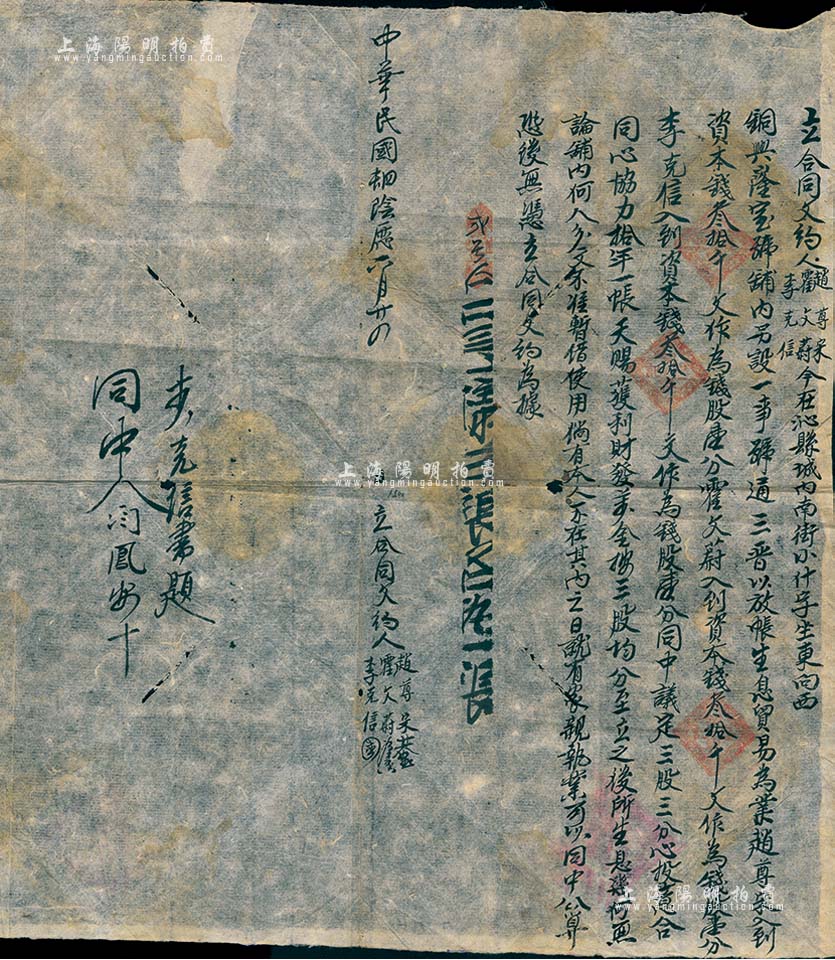 立合同文約人趙尊榮 霍文蔚 李克信今在沁縣城內南街小什字坐東向西
銅興蓬寶號舖內另設一事號通三晋以放帳生息貿易為業趙尊榮入到
資本錢叁拾千文作為錢股壹分霍文蔚入到資本錢叁拾千文作為錢股壹分
李克信入到資本錢叁拾千文作為錢股壹分同中議定三股三分心投意合
同心協力拾年一帳天賜獲利財發萬金按三股均分至立之後所生息幾何無
論舖內何人分文不准暫借使用倘有本人不在其內之日就有家親執業可以同中公算
恐後無憑立合同文約為據
中華民國 陰歷六月廿四
立合同文約人趙尊榮 霍文蔚 李克信
李克信書題
同中人閆鳳 十
上海陽明拍賣
www.yangmingauction.com
上海陽明拍賣
www.yangmingauction.com
上海陽明拍賣
www.yangmingauction.com